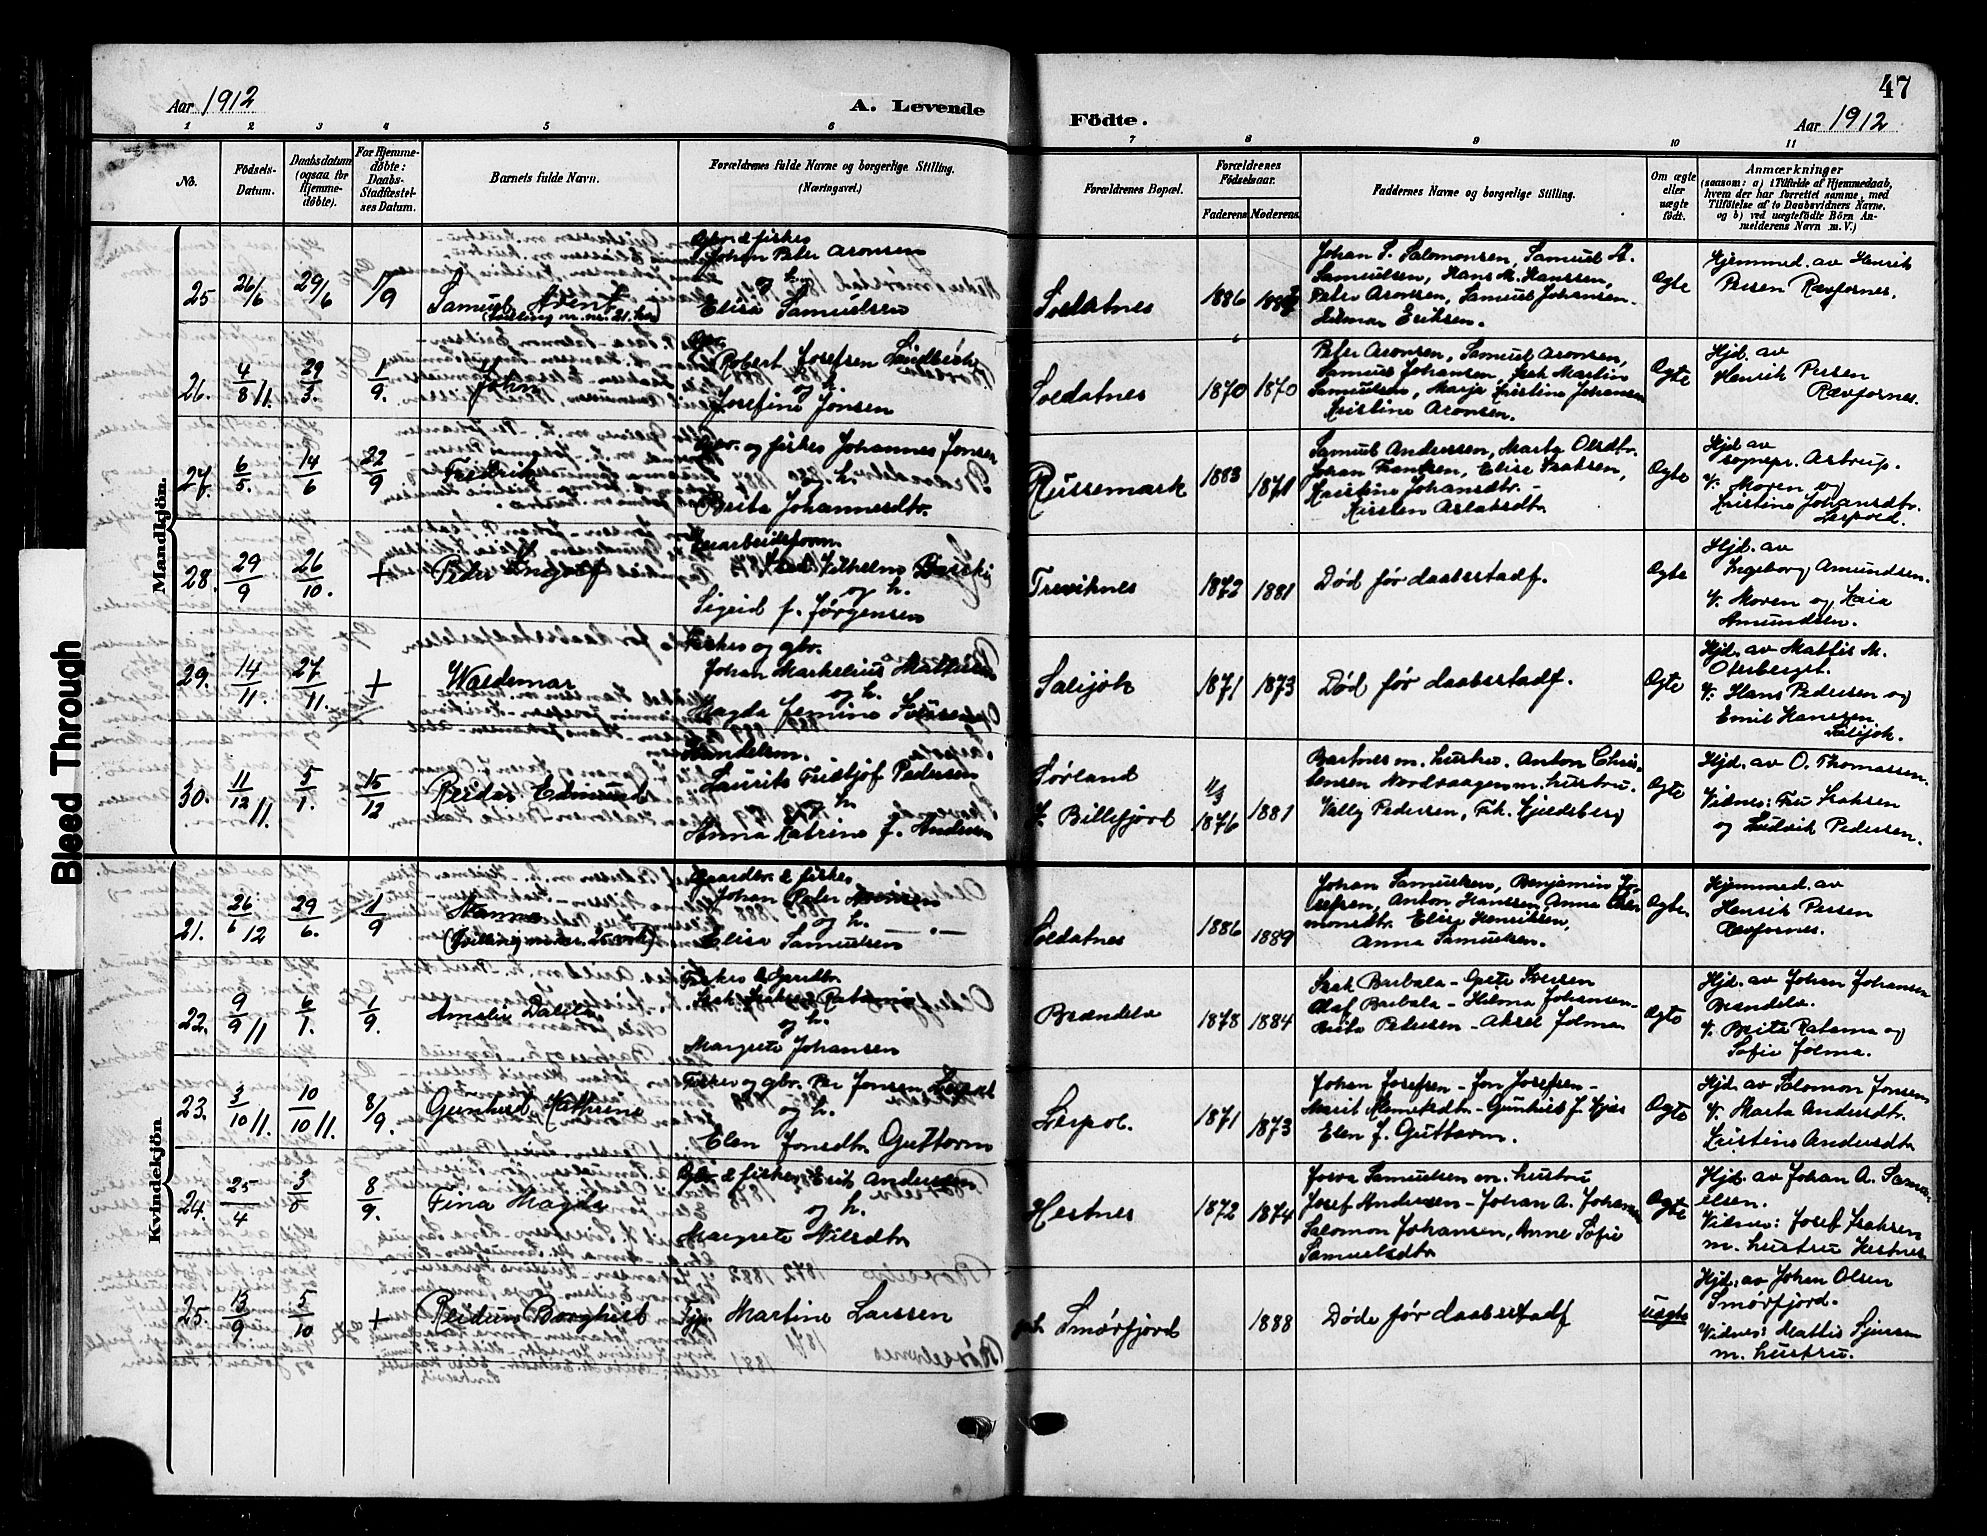 47
Aar 1912
A. Levende
Födte.
Aar 1912
1 2 3 4 5 6 7 8 9 10 11
No.
Födsels-
Datum.
Daabsdatum
(ogsaa for
Hjemme-
döbte).
For Hjemme-
döbte:
Daabs-
Stadfæstel-
ses Datum.
Barnets fulde Navn.
Forældrenes fulde Navne og borgerlige Stilling.
(Næringsvei.)
Forældrenes Bopæl.
Forældrenes
Födselsaar.
Faderens Moderens
Faddernes Navne og borgerlige Stilling.
Om ægte
eller
uægte
födt.
Anmærkninger
(saasom: a) i Tilfælde af Hjemmedaab,
hvem der har forrettet samme, med
Tilföielse af to Daabsvidners Navne.
og b) ved uægtefödte Börn An-
melderens Navn m. V.)
Mandkjön.
25 26/6 29/6 1/9
Samuel Arent
(tvilling m. nr. 21. kv.)
Gbr. & fisker
Johan Peter Aronsen
og h.
Elisa Samuelsen
Soldatnes
1886
Johan P. Salomonsen, Samuel A.
Samuelsen, Hans M. Hanssen,
Peter Aronsen, Samuel Johansen.
Hilmar Eriksen.
Ogte
Hjemmed. av Henrik
Persen Rævfornes.
26. 4/8 11. 29/3. 1/9.
John
Gbr.
Robert Josefsen
og h.
Josefine Jonsen
Soldatnes
1870 1870
Peter Aronsen, Samuel Aronsen,
Samuel Johansen, Isak Martin
Samuelsen, Marja Kristine Johansen
Kristine Aronsen.
Ogte
Hjd. av
Henrik Persen
Rævfornes.
27. 6/5. 14/6 22/9
Fredrik
Gbr. og fisker Johannes Jonsen
og h.
Brita Johannesdtr.
Russemark
1883 1871
Samuel Anderssen, Marty Olsdtr.
Johan Frantzen, Elise Isaksen,
Kristine Johansdtr. -
Kirsten Aslaksdtr.
Ogte
Hjd. av
sognepr. Astrup.
V. Moren og
Kristine Johansdtr.
Leipold.
28. 29/9 26/10. +
Peder Ingolf
Vilhelm
og h.
Sigrid f. Jørgensen
Treviknes
1872 1881
Død før daabsstadf.
Ogte
Hjd. av
Ingeborg Amundsen.
V. Moren og Kaia
Amundsen.
29. 14/11. 27/11. +
Waldemar
Fisker og gbr.
Johan Markelius Mathisen
og h.
Magda Jemine
Salijok
1871 1873
Død før daabsstadf.
Ogte
Hjd. av Mattis M.
Oterberget.
V. Hans Pedersen og
Emil Hansen
Salijok.
30. 11/12 11. 5/1. 15/12
Reidar Edmund
Handelsm.
Laurits Fridtjof Pedersen
og h.
Anna Katrine f. Andersen
Sørland
p. Billefjord
4/3
1876 1881
Bartnes m. hustru. Anton Chris-
tensen Nordhaagen m. hustru.
Vally Pedersen, Frk. Kjeldsberg
Ogte
Hjd. av O. Thomassen.
Vidner: Fru Isaksen
og Ludvik Pedersen.
Kvindekjön
21. 26/6 12 29/6. 1/9
Hanna
Gaardbr. & fisker
Johan Peter Aronsen
og h.
Elisa Samuelsen
Soldatnes
1886 1889
Johan Samuelsen, Benjamin Jo-
sefsen, Anton Hanssen, Anna
Elise Henriksen,
Anna Samuelsen.
Ogte.
Hjemmed. av
Henrik Persen
Rævfornes.
22. 9/9 11 6/1. 1/9.
Amalie Dalila
Fisker & Gaardbr.
Isak Ratama
og h.
Margrete Johansen
Brændelv
1878 1884
Isak Barbala - Grete Iversen
Olaf Barbala - Helma Johansen -
Brita Petersen - Aksel Jolma
Ogte
Hjd. av Johan Johansen
Brændelv.
V. Brita Ratama og
Sofie Jolma.
23. 3/10 11. 10/10 11. 8/9.
Gunhild Kathrine
Fisker og gbr. Per Jonsen Leipol
og h.
Elen Jonsdtr. Guttorm
Leipol.
1871 1873
Johan Josefsen - Jon Josefsen -
Marit Klemetsdtr - Gunhild f.
Elen f. Guttorm.
Ogte
Hjd. av Salomon Jonsen
V. Marta Andersdtr.
Kristine Andersdtr
24. 25/4 3/5 8/9.
Fina Magda
Gbr. & fisker Erik Andersen
og h.
Margrete Nilsdtr
Hestnes
1872 1874
Josva Samuelsen m. hustru
Josef Andersen - Johan A. Johansen
Salomon Johansen, Anne Sofie
Samuelsdtr
Ogte
Hjd. av Johan A. Samu-
elsen.
Vidner: Josef Isaksen
m. hustru Hestnes
25. 13/9 5/10 +
Reidun Borghild
Tjp. Martine Larssen
Smørfjord
1888
Døde før daabsstadf
Uægte
Hjd. av Johan Olsen
Smørfjord.
Vidner: Mattis Sjursen
m. hustru.
Bleed Through